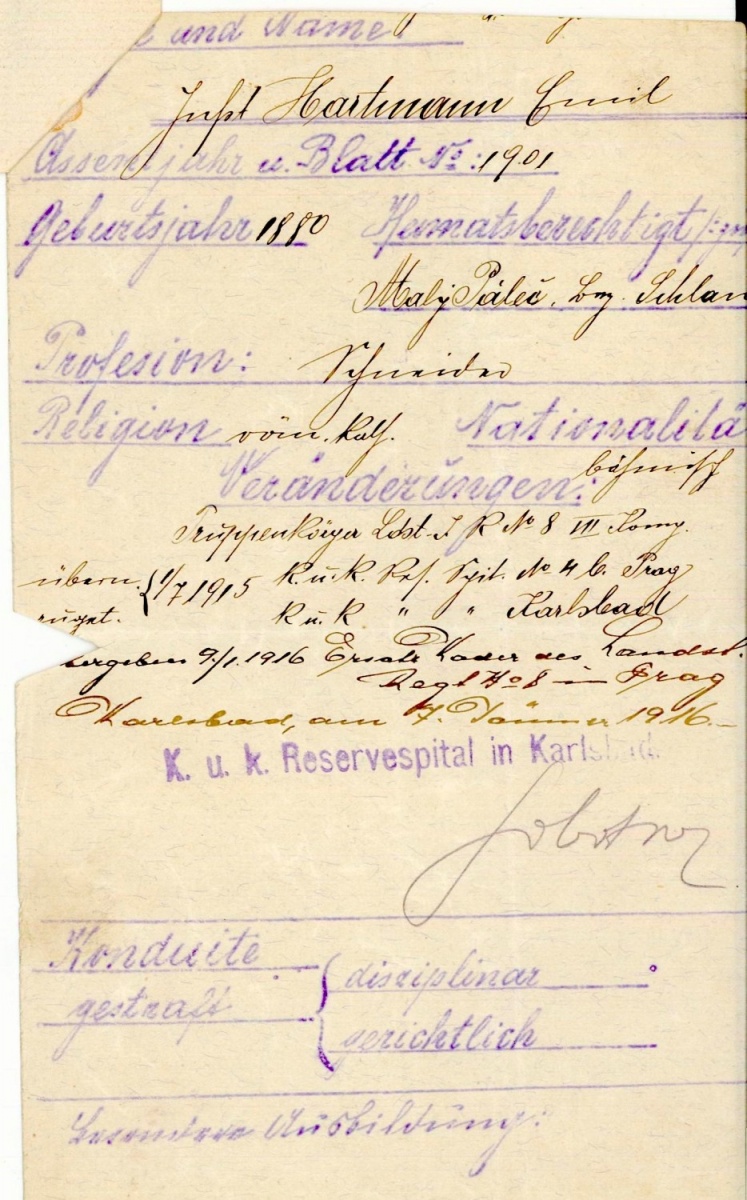 und Name.
Inft Hartmann Emil
Assentjahr u. Blatt No: 1901
Geburtsjahr 1880 Heimatsberechtigt
Malý Páleč, bez. Schlan
Profesion: Schneider
Religion röm. kath. Nationalitä
böhmisch
Veränderungen:
Truppenkörper Ldst. I R No 8 III Komp.
übern. { 1/7 1915 k. u. k. Res. Spit. No 4 b. Prag
zuget. k u. k " " Karlsbad
ergeben 9./1. 1916 Ersatz Kader des Landst.
Regt No 8 in Prag
Karlsbad, am 7. Jänner 1916.
K. u. k. Reservespital in Karlsbad.
Konduite
gestraft { disciplinar
gerichtlich
besondere Ausbildung: